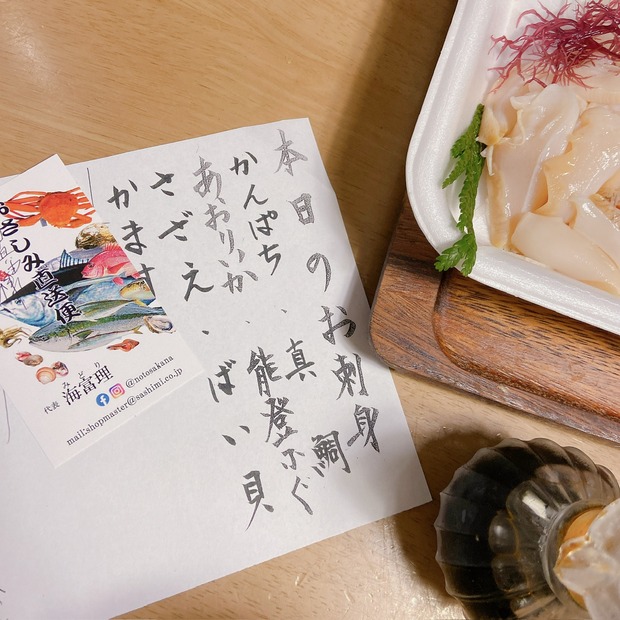 本日のお刺身
かんぱち、真鯛
あおりいか、能登ふぐ
さざえ、ばい貝
かます
おさしみ直送便
みどり
代表 海富理
@notosakana
mail:shopmaster@sashimi.co.jp